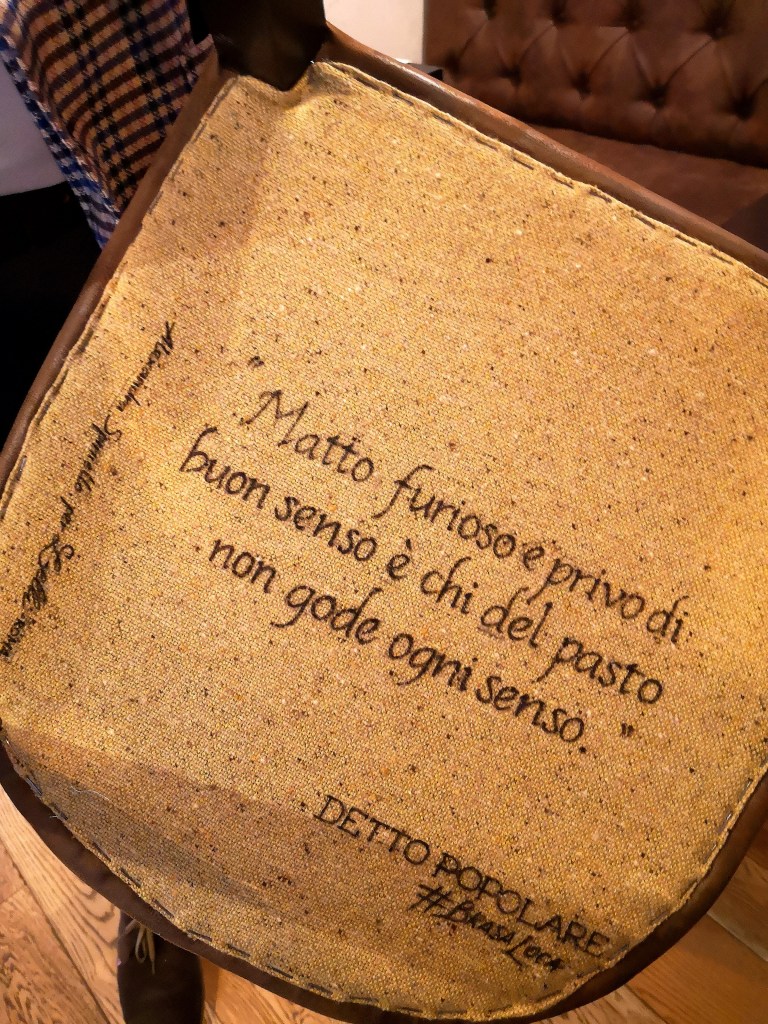 "Matto furioso e privo di
buon senso è chi del pasto
non gode ogni senso."
DETTO POPOLARE
#BrasaLoca
Alessandra Spinello per